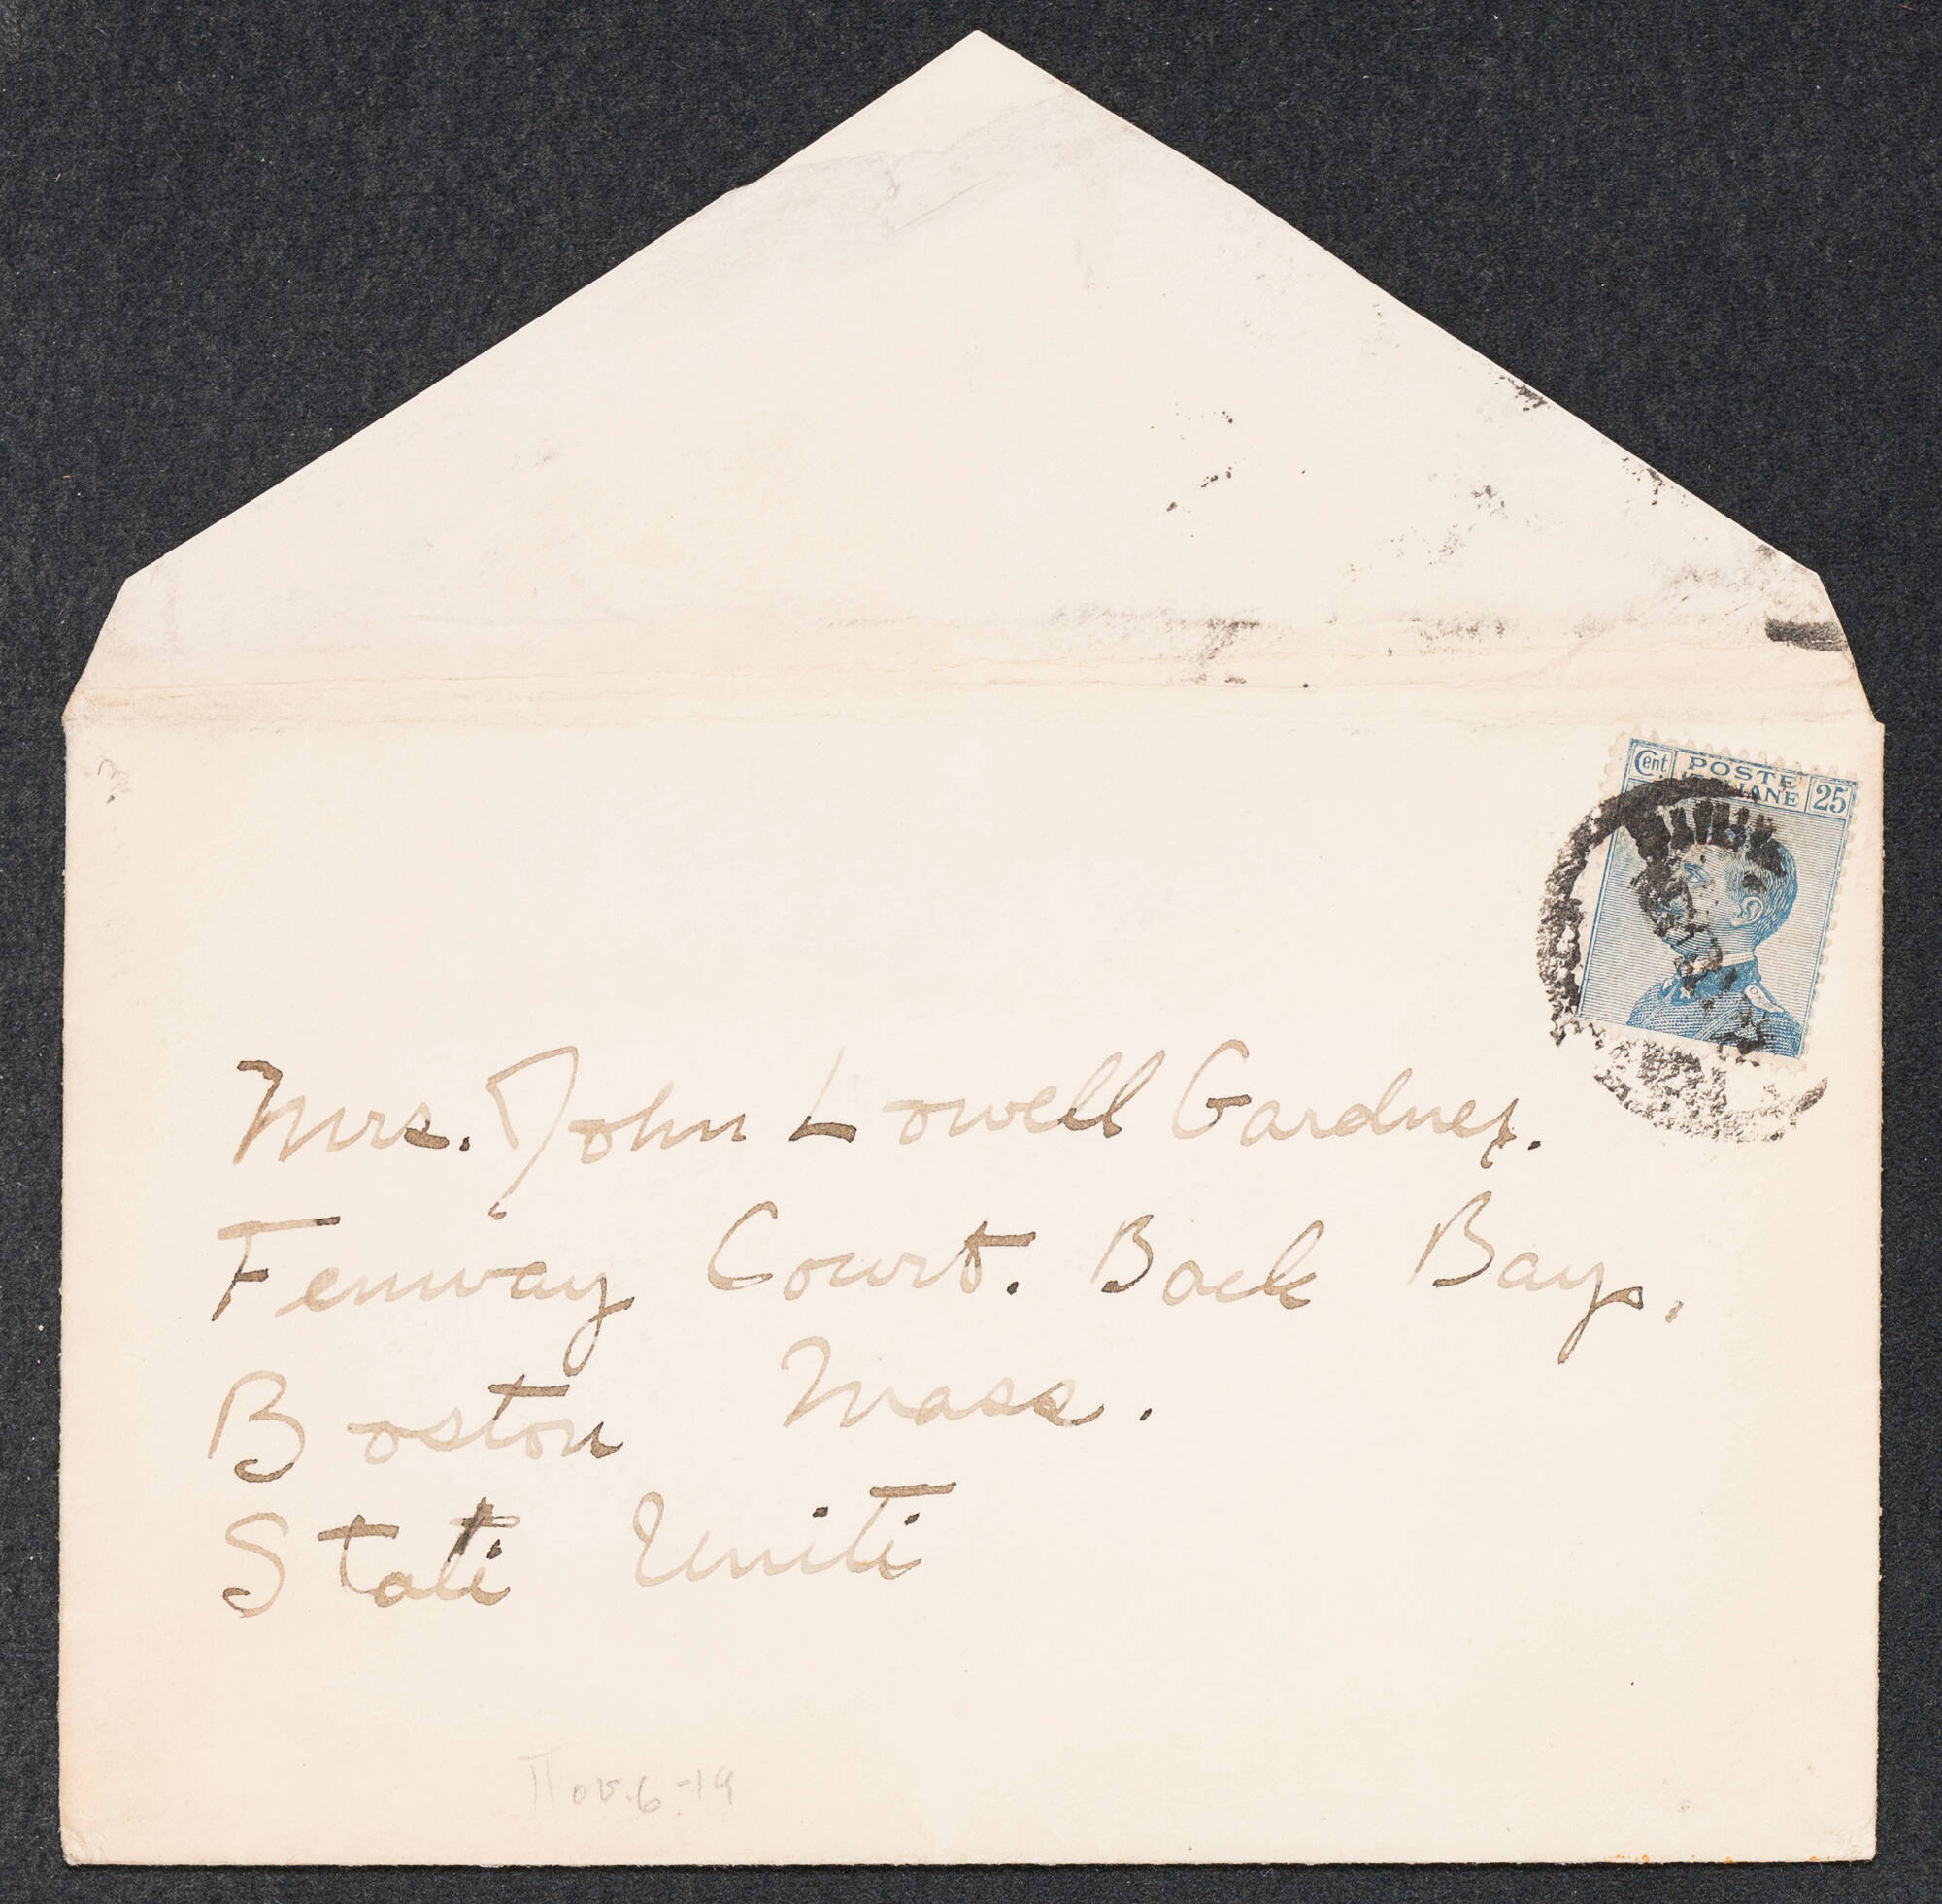 Cent POSTE 25
Mrs. John Lowell Gardner.
Fenway Court. Back Bay.
Boston Mass.
Stati Uniti
Nov. 6-19